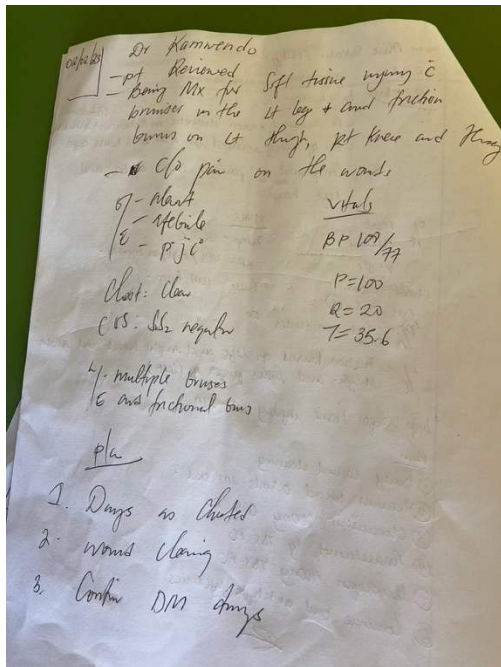 02/02/25
Dr Kamwendo
- pt Reviewed
- Being Mx for Soft tissue injury c̄
bruises on the Lt leg + and friction
burns on Lt thigh, Rt knee and
- c/o pain on the wounds
O/E - alert
- Afebrile
- pjc°
Vitals
BP 109/77
P=100
R=20
T=35.6
Chest: Clear
CVS: S1S2 regular
L/E - multiple bruises
and frictional burns
plan
1. Drugs as Charted
2. wound cleaning
3. Contin DM drugs